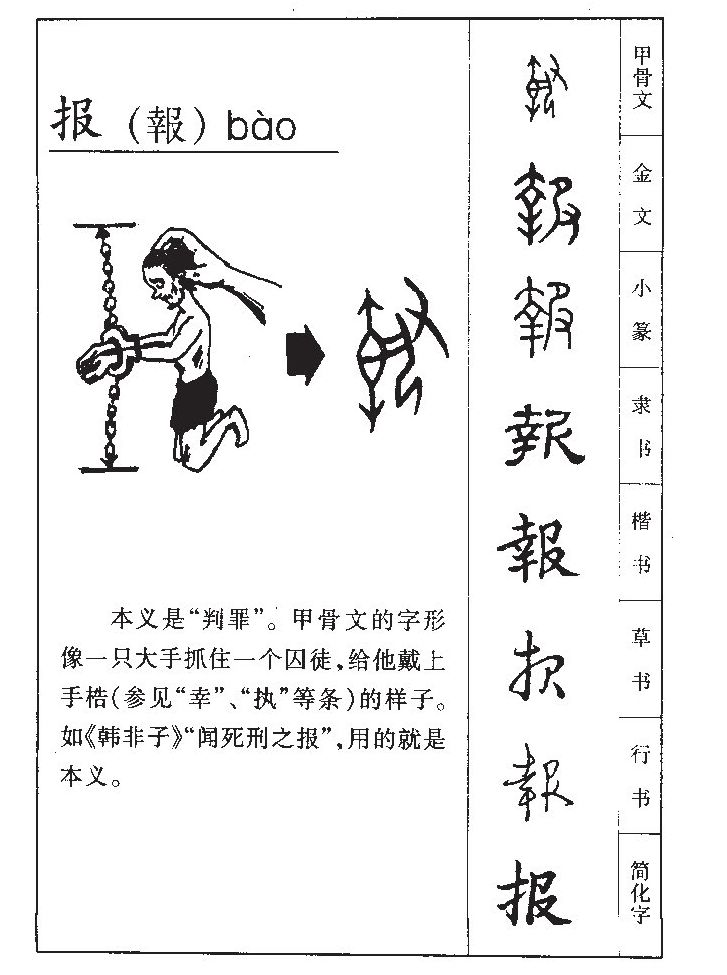 报（報）bào
本义是“判罪”。甲骨文的字形
像一只大手抓住一个囚徒，给他戴上
手梏（参见“幸”、“执”等条）的样子。
如《韩非子》“闻死刑之报”，用的就是
本义。
甲骨文
金文
報
小篆
報
隶书
報
楷书
報
草书
报
行书
報
简化字
报